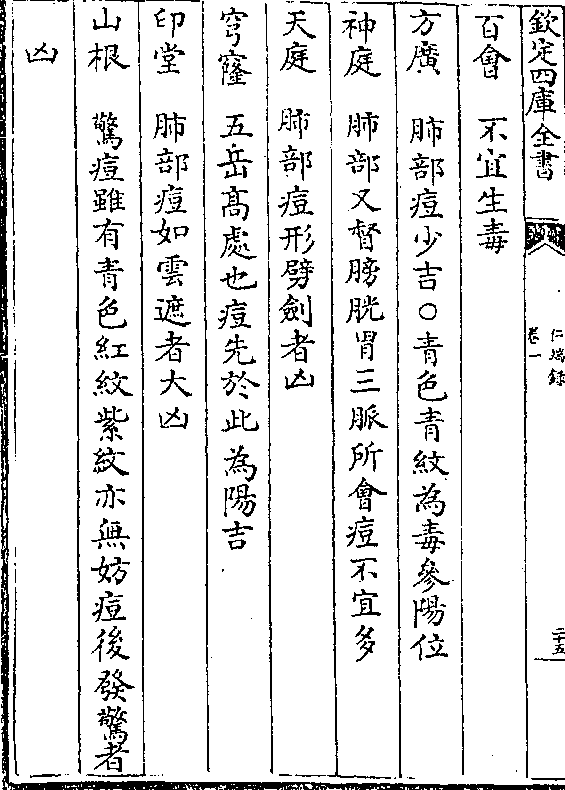 欽定四庫全書
仁端錄
卷一
二十五
百會　不宜生毒
方廣　肺部痘少吉○青色青紋為毒參陽位
神庭　肺部又督膀胱胃三脈所會痘不宜多
天庭　肺部痘形劈劍者凶
穹窿　五岳髙處也痘先於此為陽吉
印堂　肺部痘如雲遮者大凶
山根　驚痘雖有青色紅紋紫紋亦無妨痘後發驚者
凶